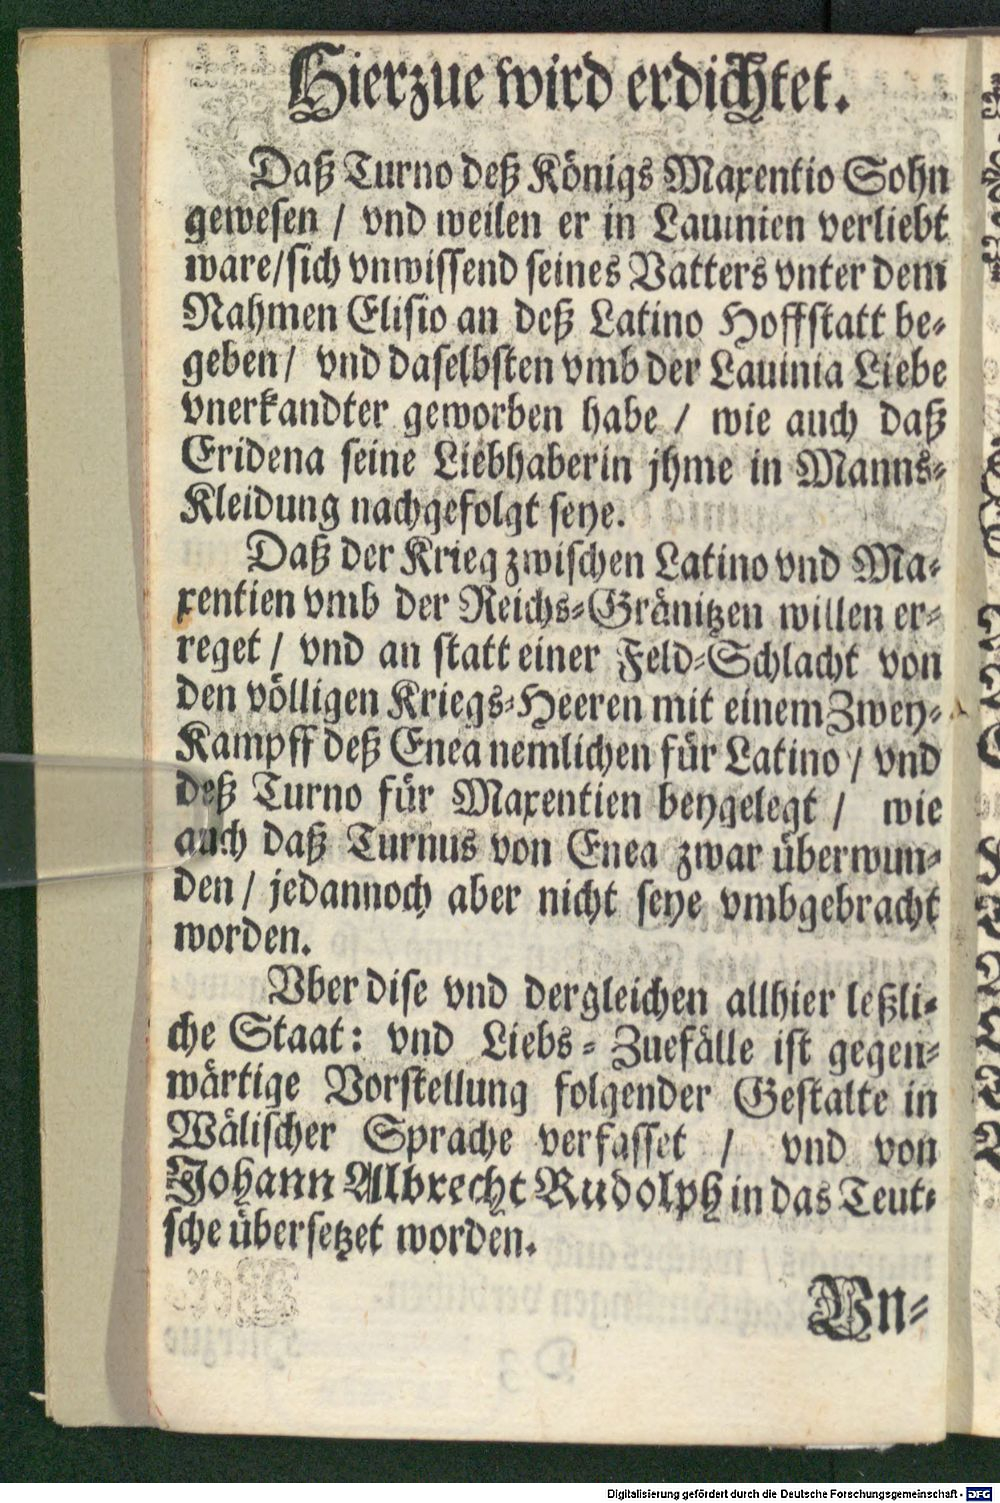 Hierzue wird erdichtet.
Daß Turno deß Königs Maxentio Sohn
gewesen / vnd weilen er in Lauinien verliebt
ware/sich vnwissend seines Vatters vnter dem
Nahmen Elisio an deß Latino Hoffstatt be-
geben / vnd daselbsten vmb der Lauinia Liebe
vnerkandter geworben habe / wie auch daß
Eridena seine Liebhaberin jhme in Manns-
Kleidung nachgefolgt seye.
Daß der Krieg zwischen Latino vnd Ma-
xentien vmb der Reichs-Gränitzen willen er-
reget / vnd an statt einer Feld-Schlacht von
den völligen Kriegs-Heeren mit einem Zwey-
Kampff deß Enea nemlichen für Latino / vnd
deß Turno für Maxentien beygelegt / wie
auch daß Turnus von Enea zwar überwun-
den / jedannoch aber nicht seye vmbgebracht
worden.
Vber dise vnd dergleichen allhier leßli-
che Staat: vnd Liebs-Zuefälle ist gegen-
wärtige Vorstellung folgender Gestalte in
Wälischer Sprache verfasset / vnd von
Johann Albrecht Rudolph in das Teut-
sche übersetzet worden.
Vn-
Digitalisierung gefördert durch die Deutsche Forschungsgemeinschaft - DFG